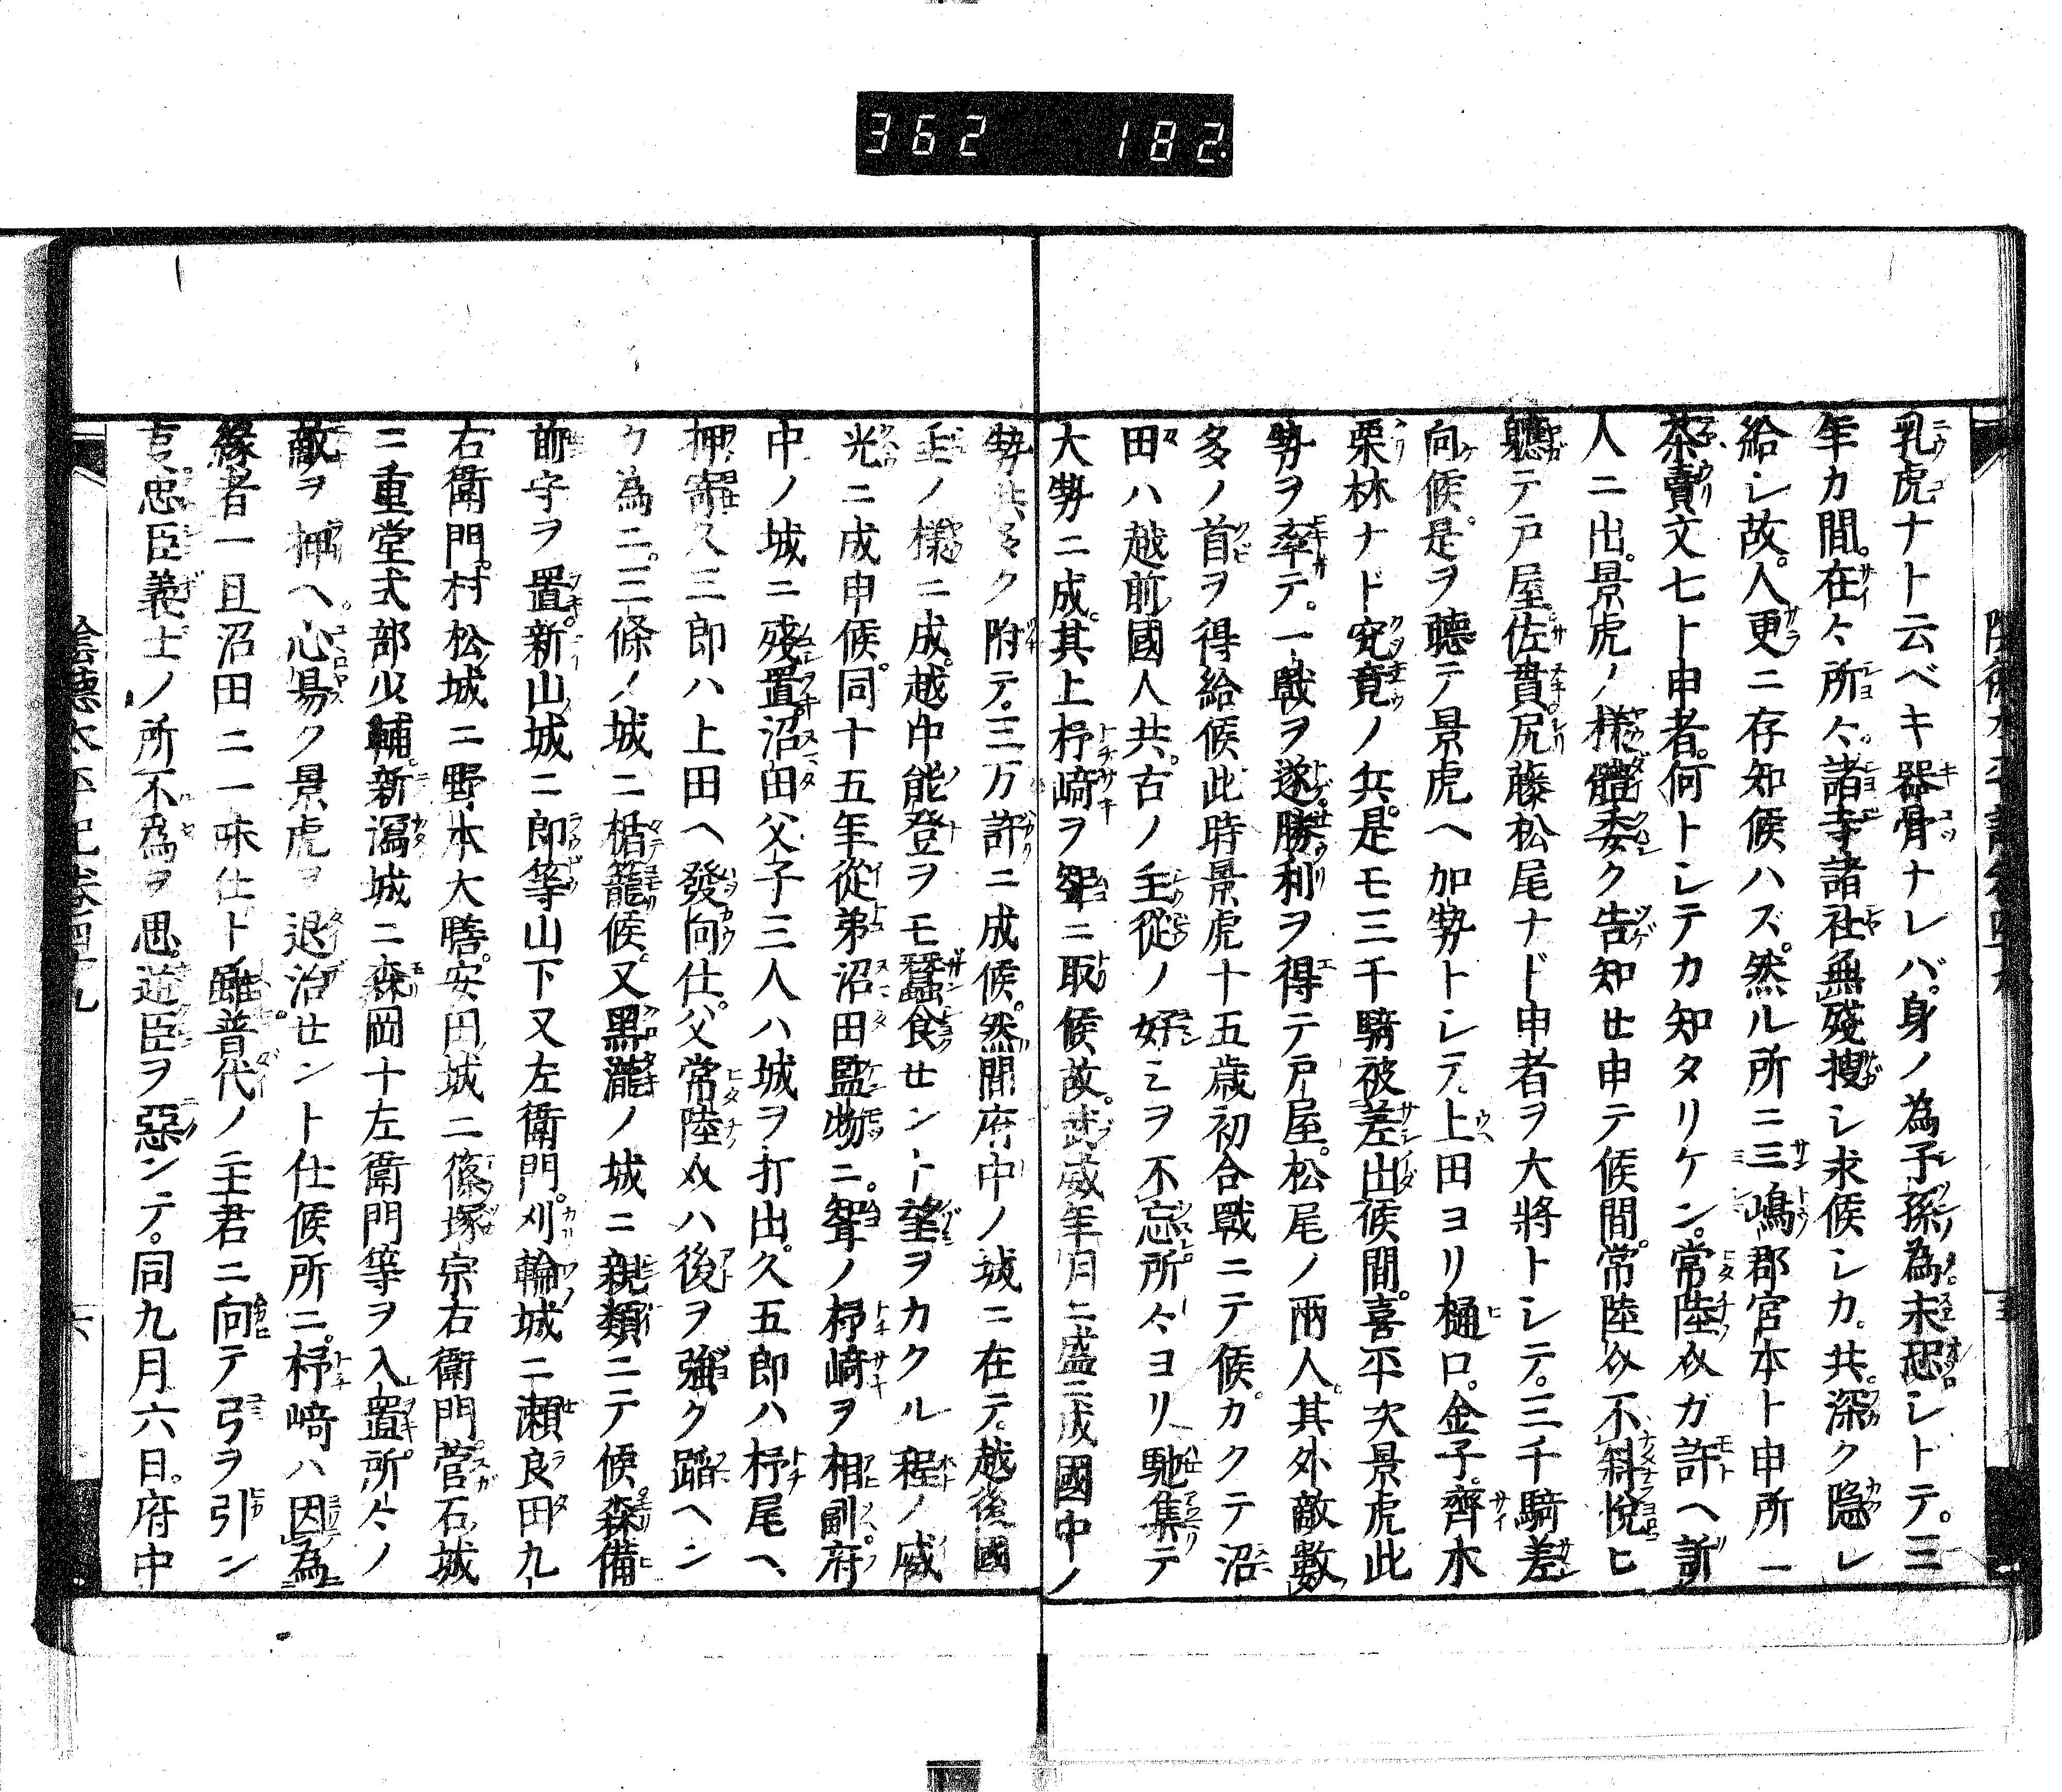 362 182
乳虎ナト云ベキ器骨ナレバ身ノ為子孫為末恐シトテ三
年カ間在々所々諸寺諸社無殘搜シ求候シカ共深ク隠レ
給シ故人更ニ存知候ハズ然ル所ニ三嶋郡官本ト申所一
茶賣文七ト申者何トシテカ知タリケン常陸介ガ許ヘ訴
人ニ出景虎ノ様體委ク告知せ申テ候間常陸介不斜悦ヒ
聽テ戸屋佐貫尻藤松尾ナド申者ヲ大將トシテ三千騎差
向候是ヲ聽テ景虎ヘ加勢トシテ上田ヨリ樋口金子齊木
栗林ナド究竟ノ兵是モ三千騎被差出候間喜平次景虎此
勢ヲ率テ一戰ヲ遂勝利ヲ得テ戸屋松尾ノ兩人其外敵數
多ノ首ヲ得給候此時景虎十五歳初合戰ニテ候カクテ沼
田ハ越前國人共古ノ主從ノ好ミヲ不忘所々ヨリ馳集テ
大勢ニ成其上杼﨑ヲ聟ニ取候故武威年月ニ盛ニ成國中ノ
勢共多ク附テ三万許ニ成候然間府中ノ城ニ在テ越後國
ノ樣ニ成越中能登ヲモ蠶食せント望ヲカクル程ノ威
光ニ成申候同十五年從弟沼田監物ニ聟ノ杼﨑ヲ相副府
中ノ城ニ殘置沼田父子三人ハ城ヲ打出久五郎ハ杼尾ヘ
押寄久三郎ハ上田ヘ發向仕父常陸介ハ後ヲ強ク蹈ヘン
ク為ニ三條ノ城ニ楯籠候又黒瀧ノ城ニ親類ニテ候森備
前守ヲ置新山城ニ郎等山下又左衛門刈輪城ニ瀬良田九
右衛門村松城ニ野本大膳安田城ニ篠塚宗右衛門菅石城
ニ重堂式部少輔新潟城ニ森岡十左衛門等ヲ入置所々ノ
敵ヲ押ヘ心易ク景虎ヲ退治せント仕候所ニ杼﨑ハ因為
縁者一旦沼田ニ一味仕ト雖普代ノ主君ニ向テ弓ヲ引ン
忠臣義士ノ所不為ヲ思逆臣ヲ惡ンテ同九月六日府中
陰德太平記卷四十九
六